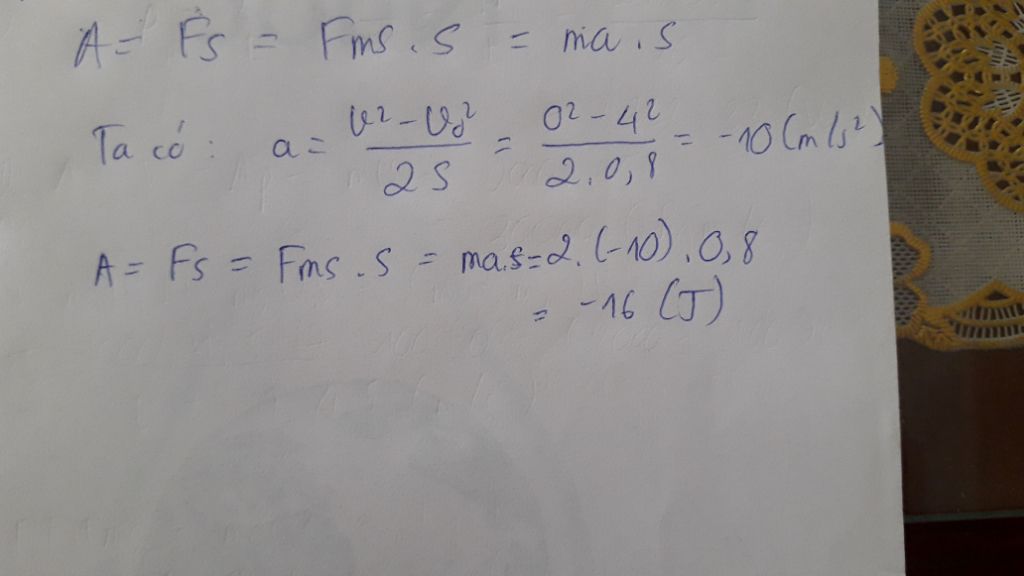 A = Fs = Fms . S = ma . S
Ta có : a = v² - v₀² / 2S = 0² - 4² / 2.0,8 = -10 (m/s²)
A = Fs = Fms . S = ma.s = 2. (-10) . 0,8
= -16 (J)